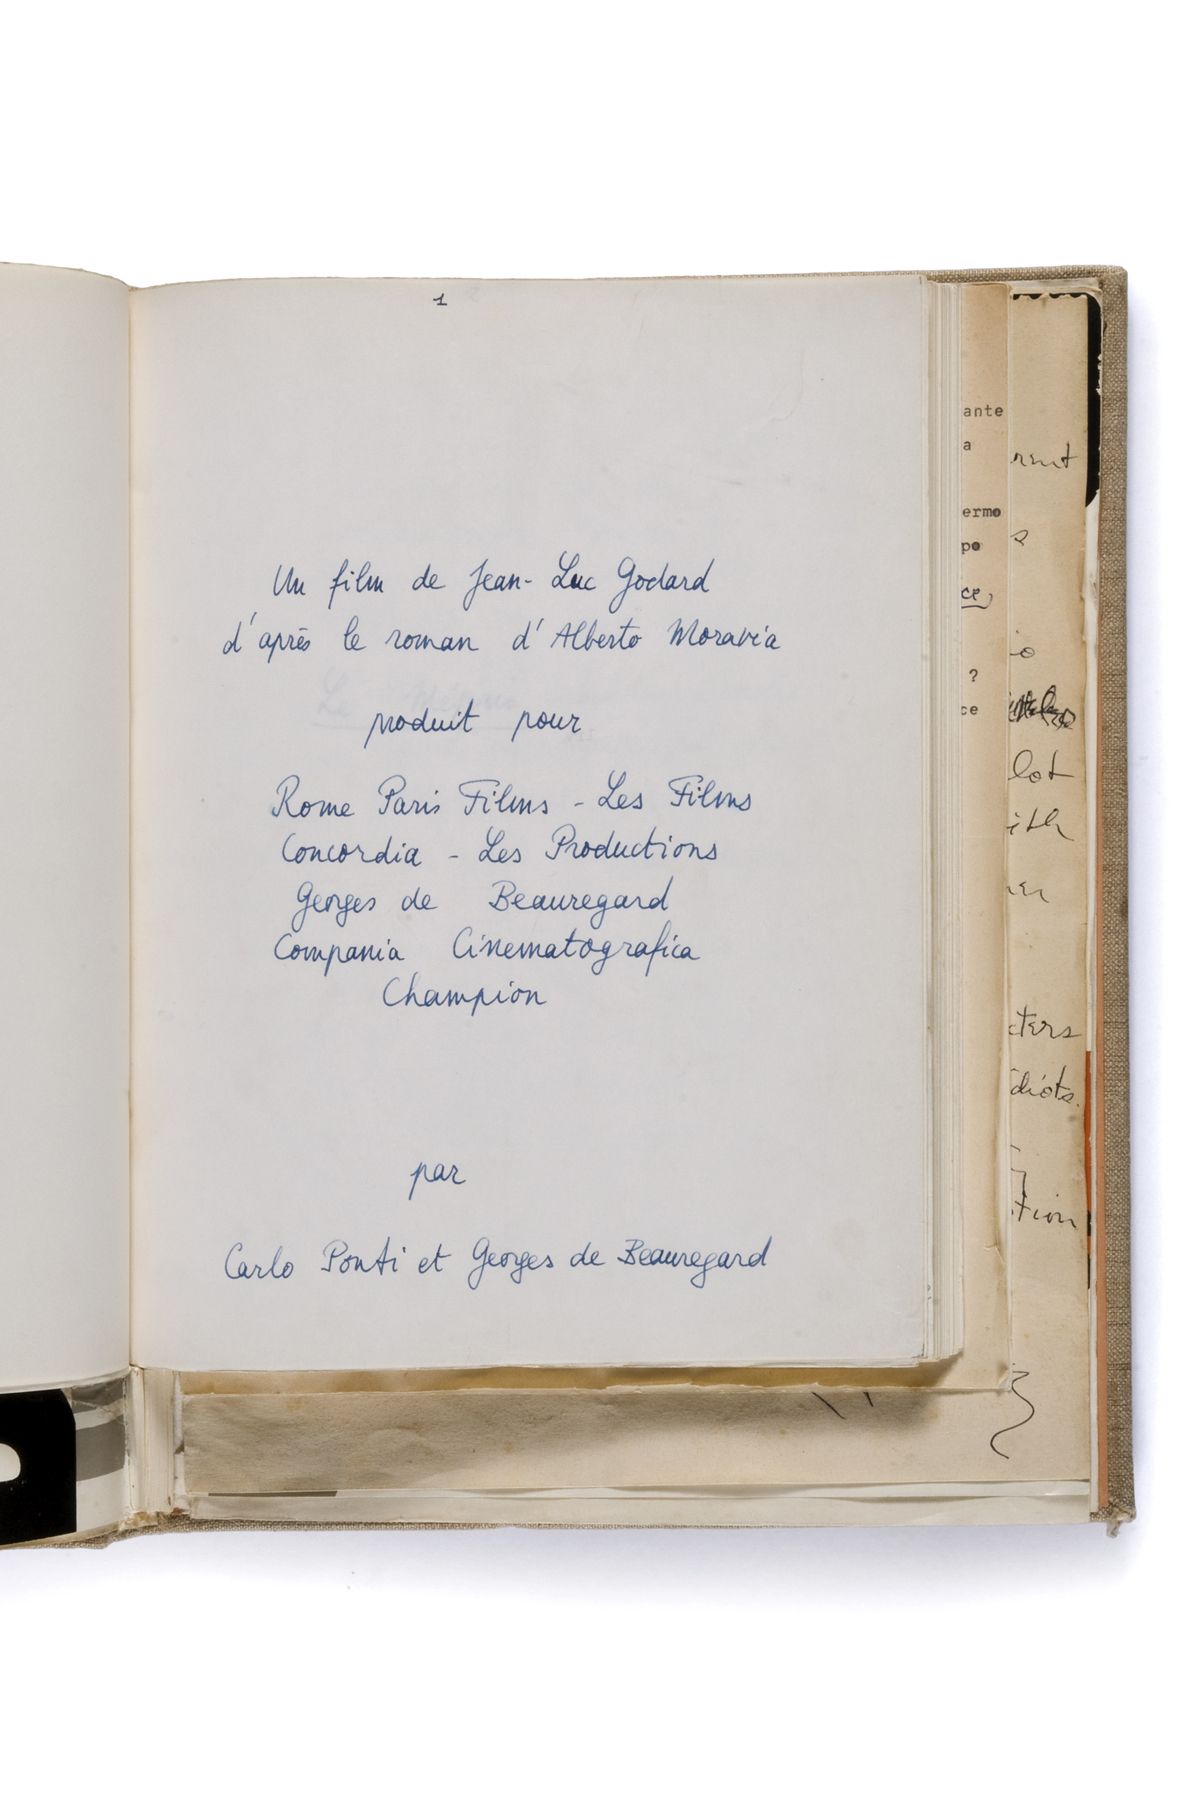 1
Un film de Jean-Luc Godard
d'après le roman d'Alberto Moravia
produit pour
Rome Paris Films - Les Films
Concordia - Les Productions
Georges de Beauregard
Compania Cinematografica
Champion
par
Carlo Ponti et Georges de Beauregard
ante
a
ermo
po
ce,
?
ce
rent
s
io
lot
ith
her
cters
diots.
tion